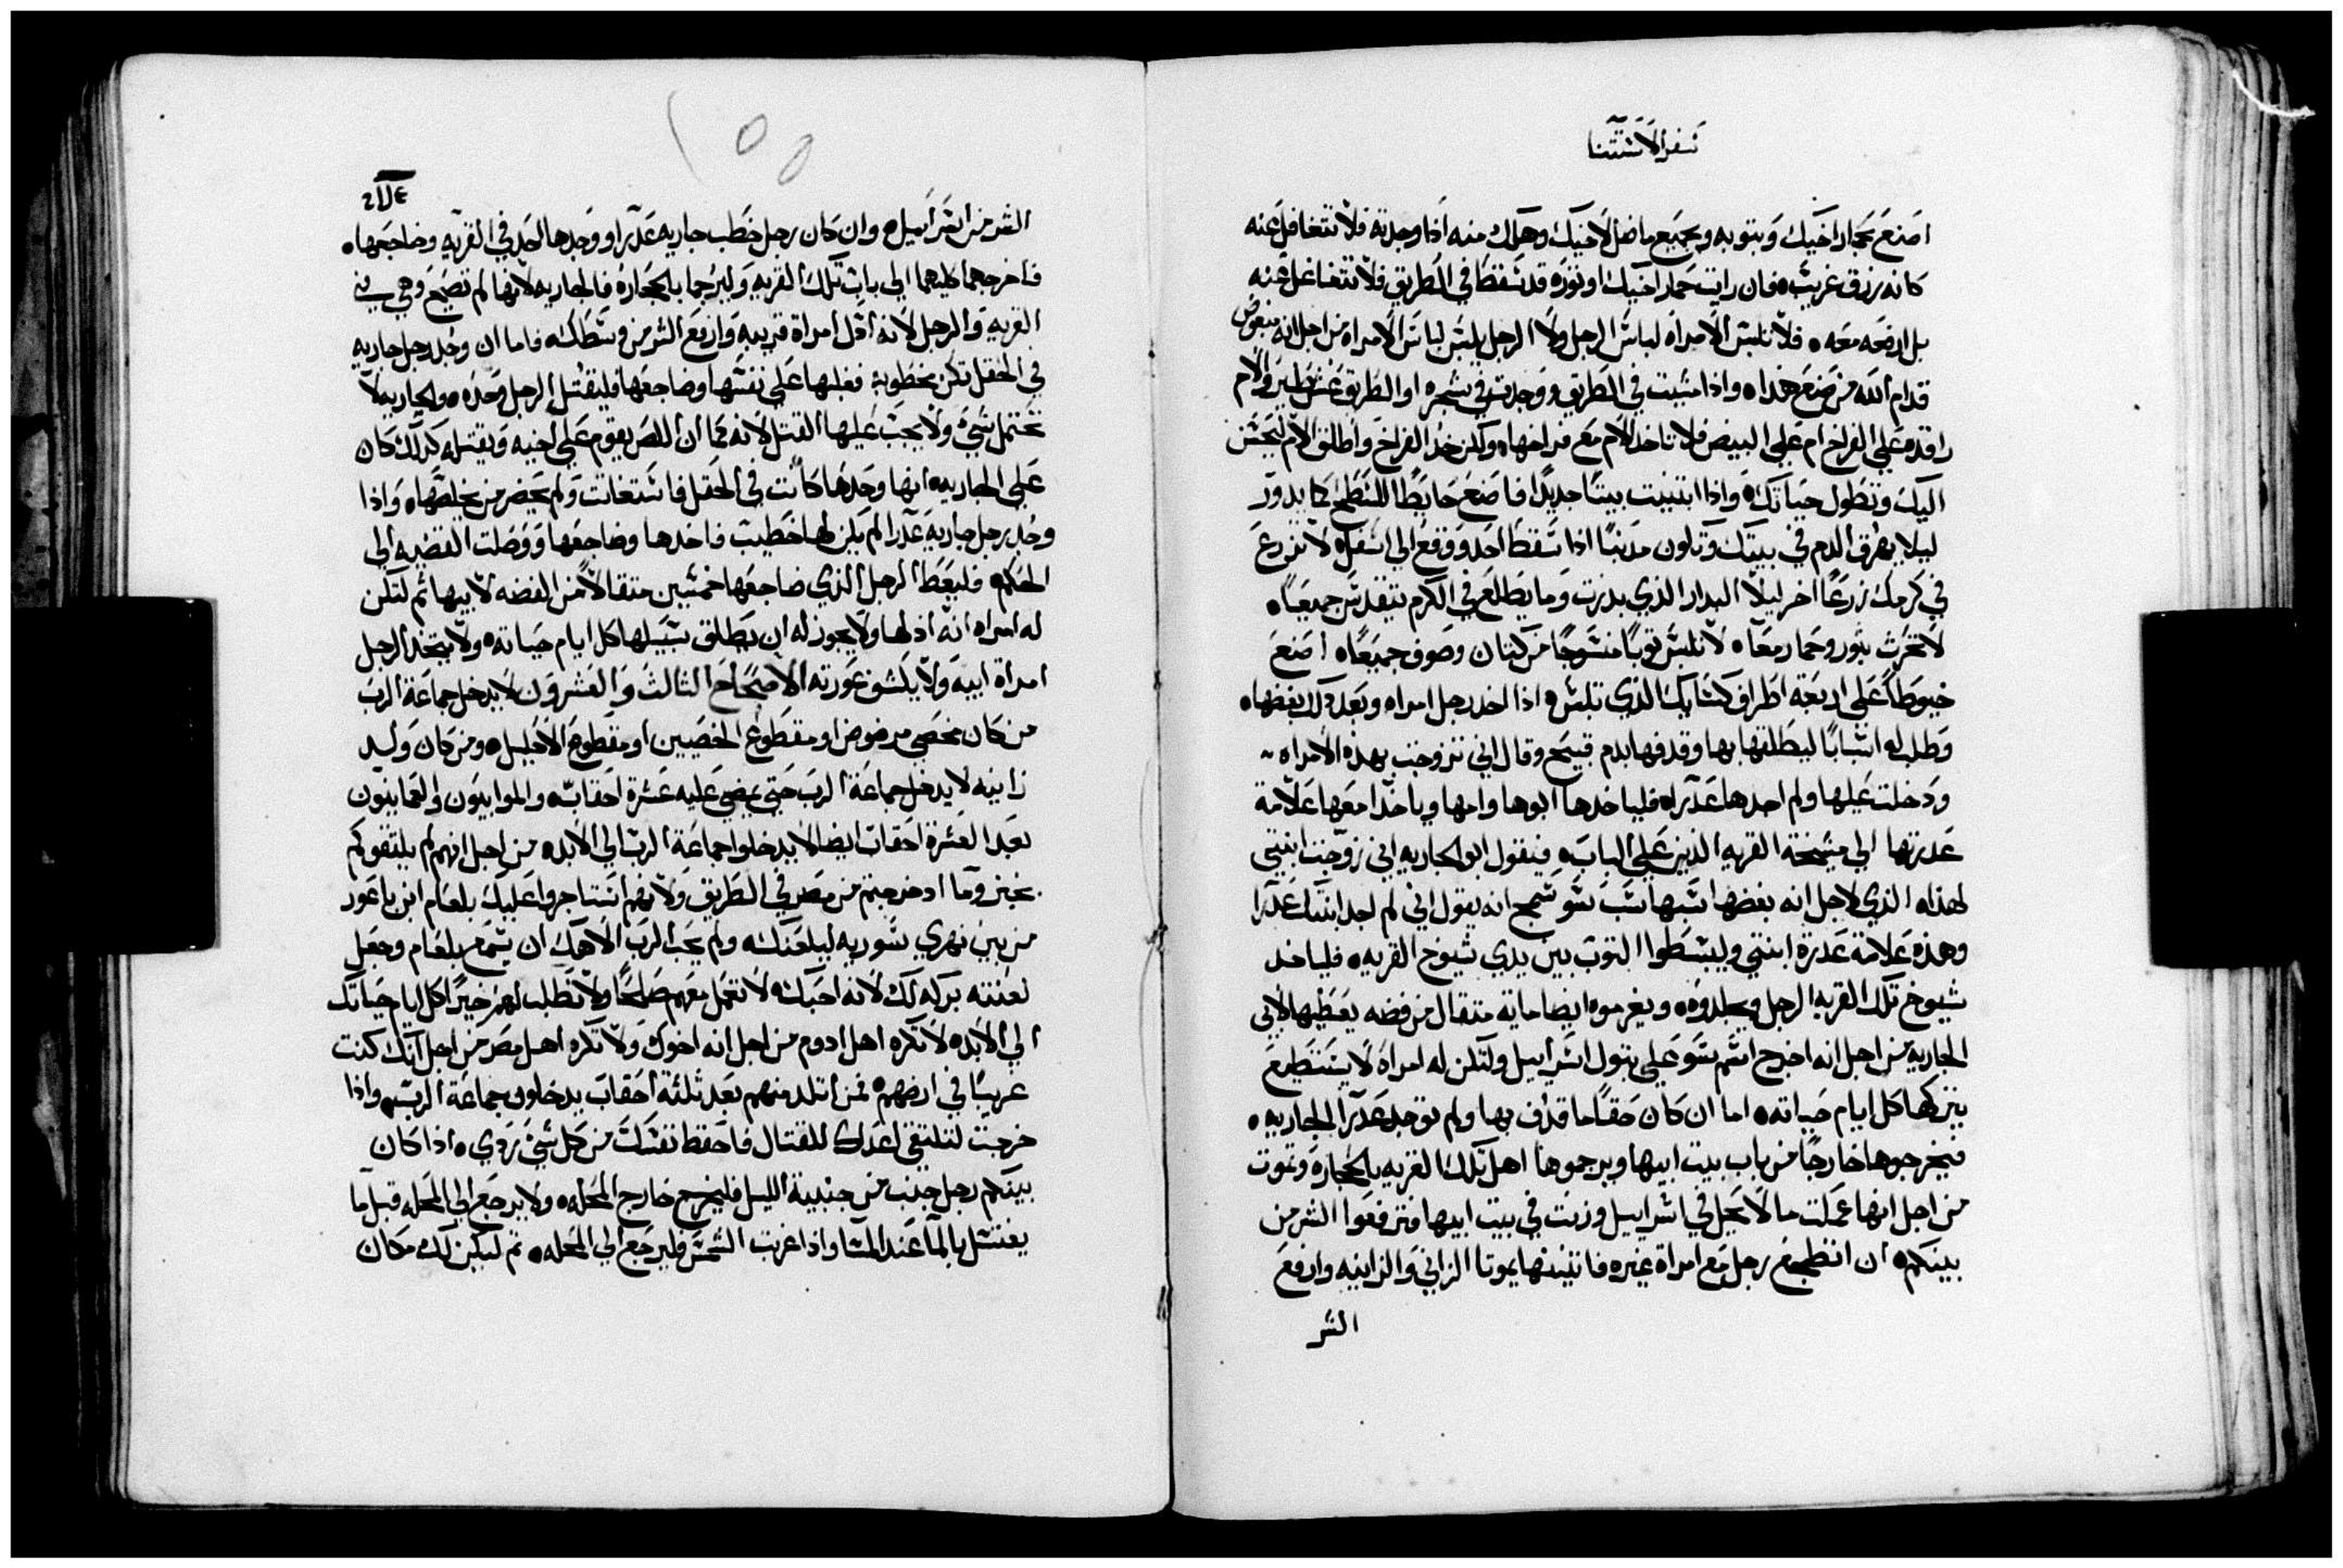 سفر الاستثنا
اصنع بحمار اخيك وبتوبه وبجميع ما ضل لاخيك وهلك منه اذا وجدته فلا تتغافل عنه
كانه رزق غريب فان رايت حمار اخيك او ثوره قد سقط في الطريق فلا تتغافل عنه
بل ارفعه معه فلا تلبس الامراه لباس الرجل ولا الرجل يلبس لباس الامراه من اجل انه مبغوض
قدام الله من صنع هذا واذا مشيت في الطريق ووجدت في شجره او الطريق عش طير والام
راقده على الفراخ ام على البيض فلا تاخد الام مع فراخها ولكن خد الفراخ واطلق الام ليحسن
اليك وتطول حياتك واذا ابتنيت بيتا جديدا فاصنع حايطا للسطح كما يدور
ليلا يهرق الدم في بيتك وتكون مدنبا اذا سقط احد ووقع الى اسفل لا تزرع
في كرمك زرعا اخر ليلا البدار الذي بدرت وما يطلع في الكرم يتقدس جميعا
لا تحرث بثور وحمار معا لا تلبس توبا منسوجا من كتان وصوف جميعا اصنع
خيوطا على اربعة اطراف كسايك الذي تلبس اذا اخد رجل امراه وبعد دلك بغضها
وطلب له اسبابا ليطلقها بها وقدفها بدم قبيح وقال اني تزوجت بهذه الامراه
ودخلت عليها ولم اجدها عدرا فلياخدها ابوها وامها وياخدا معها علامة
عدرتها الي مشيخة القريه الذين على الباب فيقول ابو الجاريه اني زوجت ابنتي
لهذا الذي لاجل انه بغضها سبها سب سو سمج انه يقول اني لم اجد ابنتك عدرا
وهذه علامة عدرة ابنتي وليبسطوا التوب بين يدي شيوخ القريه فلياخد
شيوخ تلك القريه الرجل ويجلدوه ويغرموه ايضا مايه متقال من فضه يعطيها لابي
الجاريه من اجل انه اخرج اسم سو على بتول اسراييل ولتكن له امراة لا يستطيع
يتركها كل ايام حياته اما ان كان حقا ما قدف بها ولم توجد عدرا الجاريه
فيخرجوها خارجا من باب بيت ابيها ويرجموها اهل تلك القريه بالحجارة وتموت
من اجل انها عملت ما لا يحل في اسراييل وزنت في بيت ابيها وترفعوا الشر من
بينكم ان انضجع رجل مع امراة غيره فاتنينها يموتا الزاني والزانيه وارفع
الشر
الشر من اسراييل وان كان رجل خطب جاريه عدرا ووجدها احد في القريه وضاجعها
فاخرجهما كليهما الي باب تلك القريه وليرجما بالحجاره فالجاريه لانها لم تصيح وهي في
القريه والرجل لانه ادل امراة قريبه وارفع الشر من وسطك فاما ان وجد رجل جاريه
في الحقل تكن مخطوبة فغلبها على نفسها وضاجعها فليقتل الرجل وحده والجاريه لا
تحتمل شي ولا يجب عليها القتل لانه كما ان اللص يقوم على اخيه ويقتله كدلك كان
على الجاريه انها وحدها كانت في الحقل فاستغاثت ولم يحضر من يخلصها واذا
وجد رجل جارية عدرا لم يكن لها خطيب فاخدها وضاجعها ووصلت القضيه الي
الحكم فليعط الرجل الذي ضاجعها خمسين متقالا من الفضه لابيها ثم لتكن
له امراه انه ادلها ولا يجوز له ان يطلق سبيلها كل ايام حياته ولا يتخد الرجل
امراة ابيه ولا يكشف عورته الاصحاح الثالث والعشرون لا يدخل جماعة الرب
من كان مخصي مرضوض او مقطوع الخصيين او مقطوع الاحليل ومن كان وليد
زانيه لا يدخل جماعة الرب حتى يمضي عليه عشرة احقاب والموابيون والعمانيون
بعد العشرة احقاب ايضا لا يدخلوا جماعة الرب الي الابد من اجل انهم لم يلتقوكم
بخبز وما اد خرجتم من مصر في الطريق ولانهم استاجروا عليك بلعام ابن باعور
من بين نهري سوريه ليلعنك ولم يحب الرب الاهك ان يسمع بلعام وجعل
لعنته بركه لك لانه احبك لا تعمل معهم صلحا ولا تطلب لهم خيرا كل ايام حياتك
الي الابد لا تكره اهل ادوم من اجل انه اخوك ولا تكره اهل مصر من اجل انك كنت
غريبا في ارضهم فمن اتلد منهم بعد ثلثة احقاب يدخلوا في جماعة الرب واذا
خرجت لتلتقي اعداك للقتال فاحفظ نفسك من كل شي ردي اذا كان
بينكم رجل جنب من جنبية الليل فليخرج خارج المحله ولا يرجع الي المحله قبل ما
يغتسل بالما عند المسا واذا غربت الشمس فليرجع الي المحله ثم ليكن لك مكان